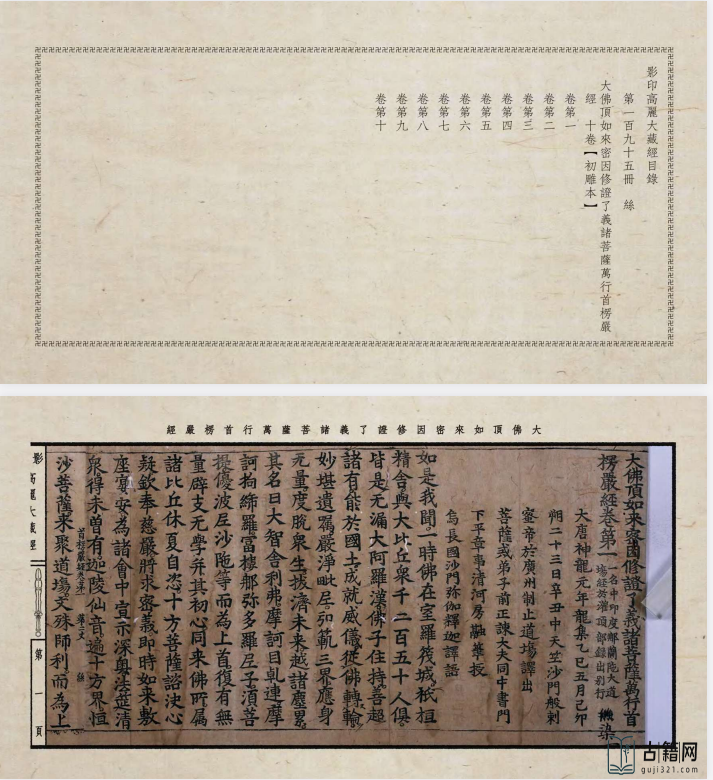 影印高麗大藏經目錄
第一百九十五冊 絲
大佛頂如來密因修證了義諸菩薩萬行首楞嚴
經 十卷【初雕本】
卷第一
卷第二
卷第三
卷第四
卷第五
卷第六
卷第七
卷第八
卷第九
卷第十
大佛頂如來密因修證了義諸菩薩萬行首楞嚴經
大佛頂如來密因修證了義諸菩薩萬行首
楞嚴經卷第一
一名中印度那蘭陀大道
場經於灌頂部錄出別行
大唐神龍元年龍集乙巳五月己卯
朔二十三日辛丑中天竺沙門般剌
蜜帝於廣州制止道場譯出
菩薩戒弟子前正諫大夫同中書門
下平章事清河房融筆授
烏長國沙門弥伽釋迦譯語
如是我聞一時佛在室羅筏城祇桓
精舍與大比丘衆千二百五十人俱
皆是无漏大阿羅漢佛子住持善超
諸有能於國土成就威儀從佛轉輪
妙堪遺囑嚴淨毗尼弘範三界應身
无量度脫衆生拔濟未來越諸塵累
其名曰大智舍利弗摩訶目乹連摩
訶拘絺羅富樓那弥多羅尼子須菩
提優波尼沙陁等而為上首復有無
量辟支无學并其初心同來佛所属
諸比丘休夏自恣十方菩薩諮決心
疑欽奉慈嚴將求密義即時如來敷
座宴安為諸會中宣示深奧法筵清
衆得未曽有迦陵仙音遍十方界恒
沙菩薩來聚道場文殊師利而為上
影 高麗大藏經
第一頁
古籍网
guji321.com